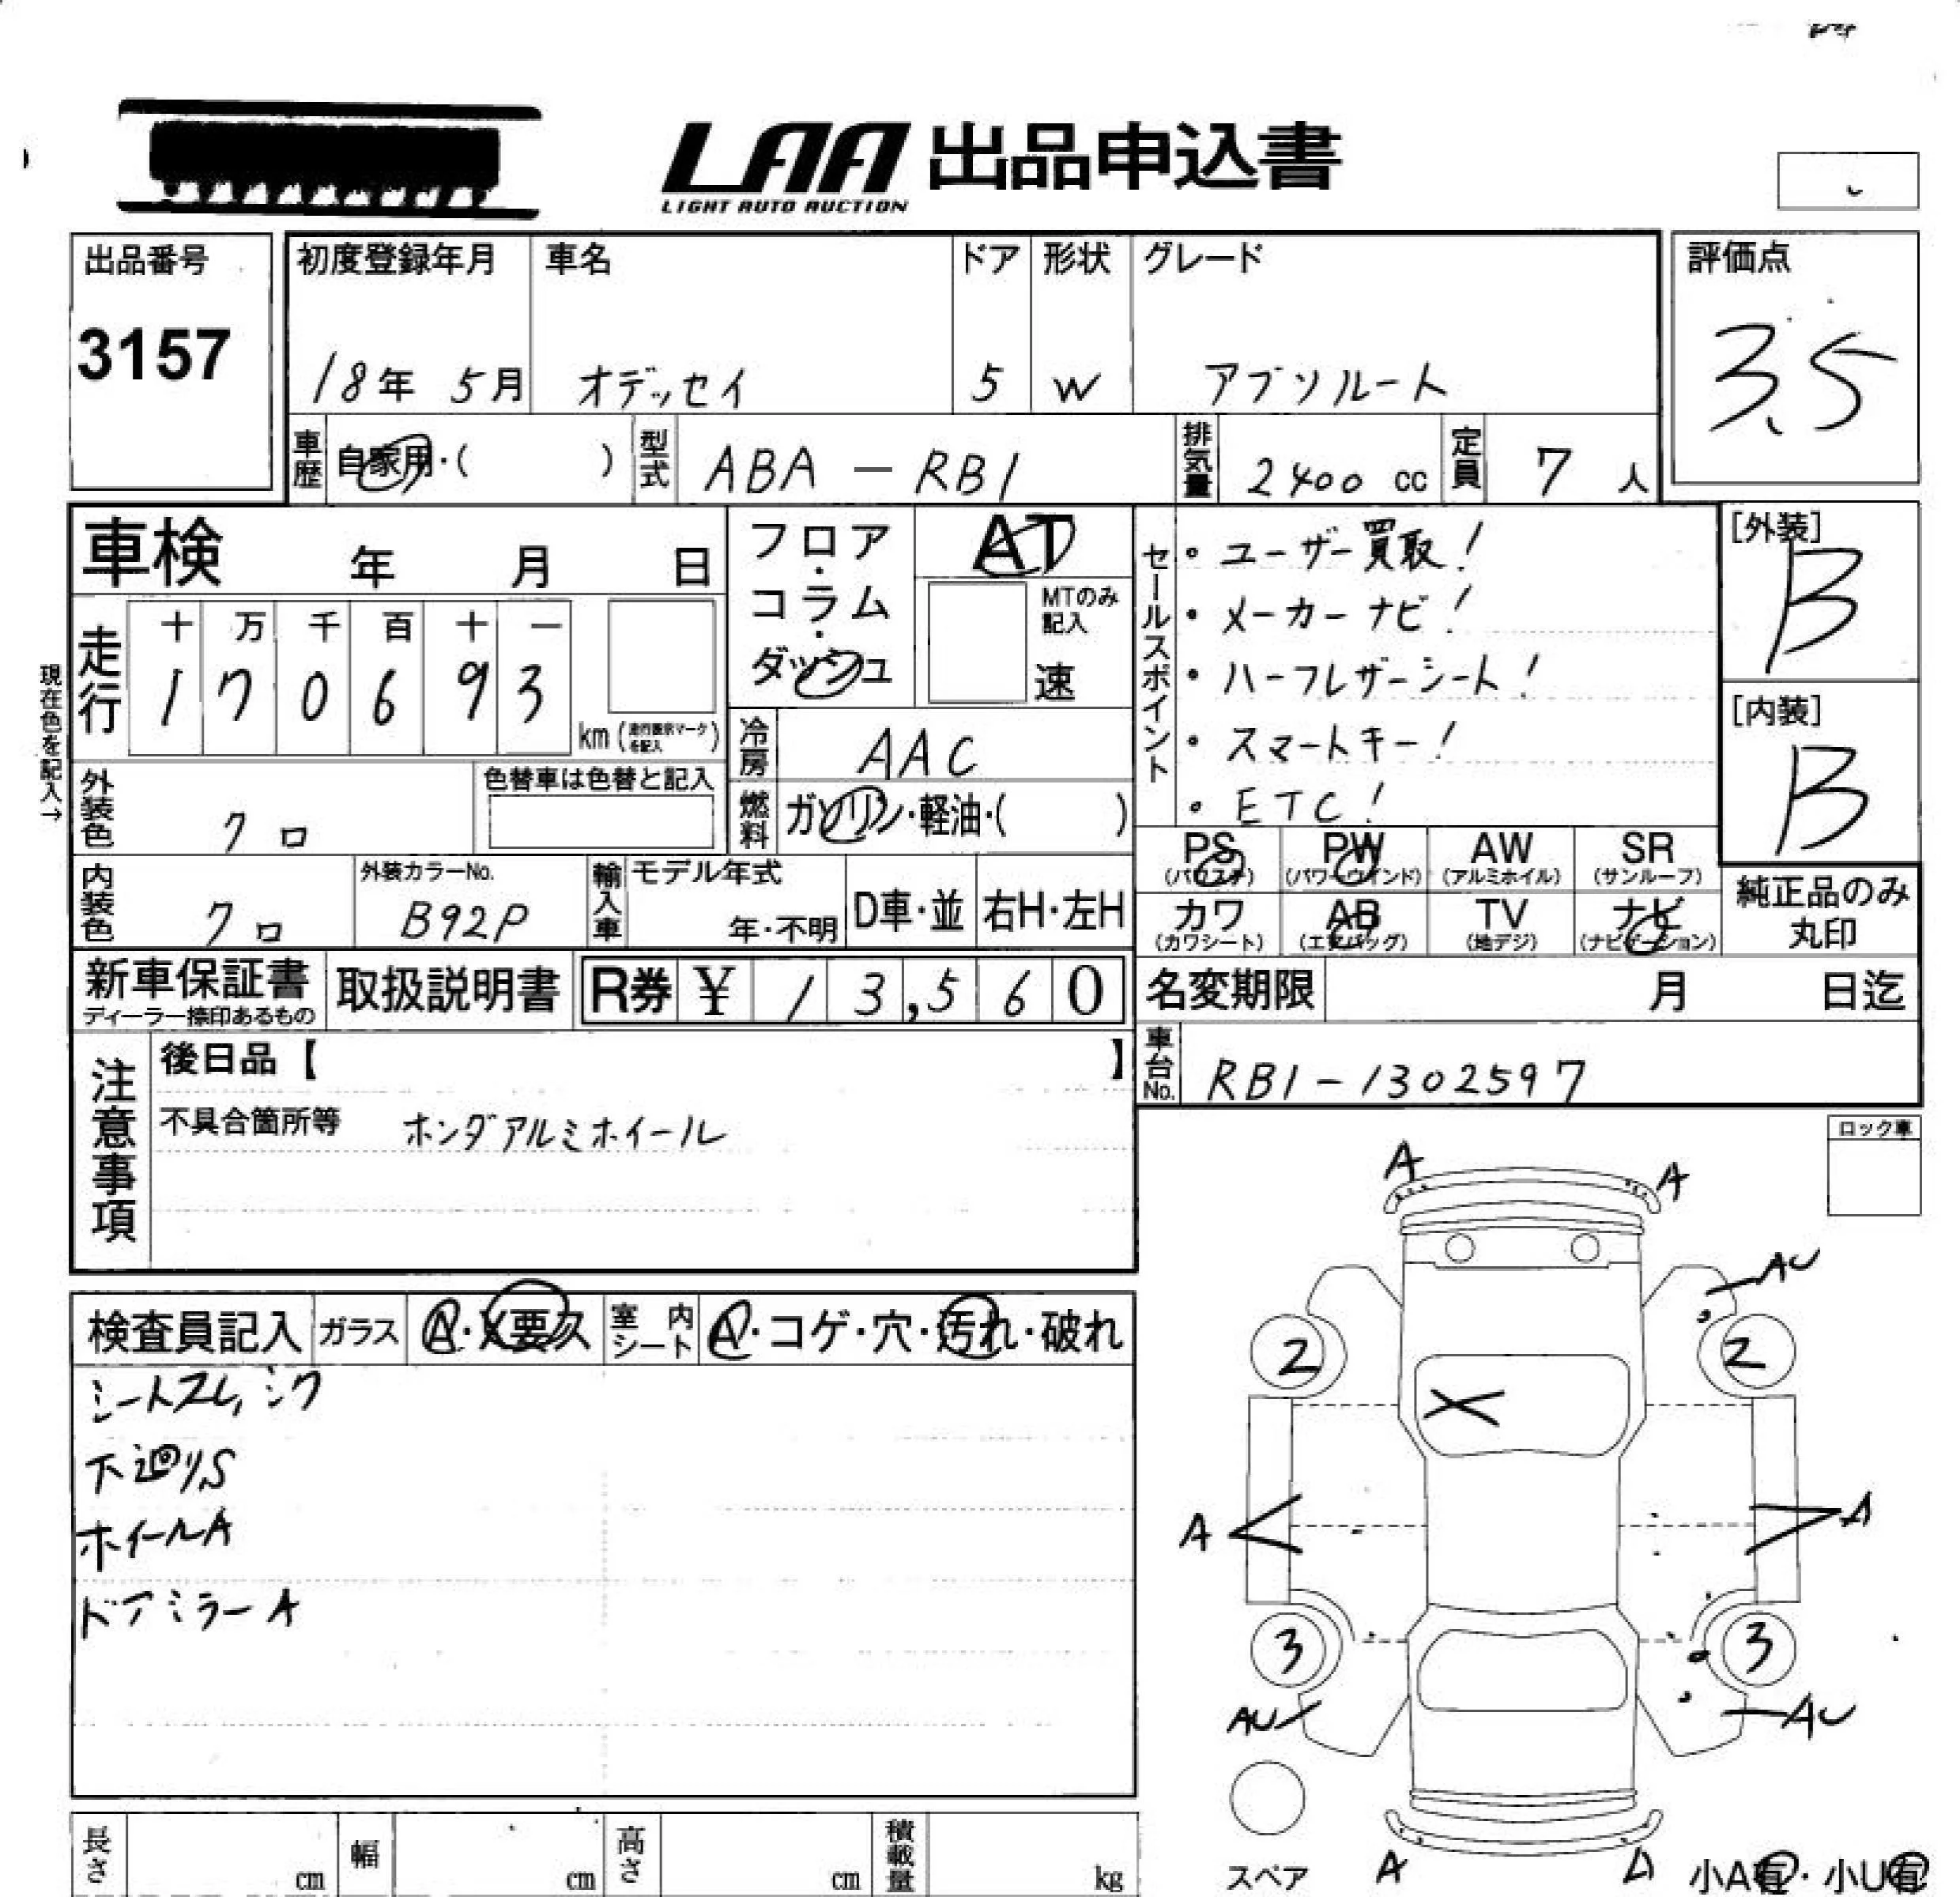 LAA 出品申込書
LIGHT AUTO AUCTION
出品番号
3157
初度登録年月
18年 5月
車名
オデッセイ
ドア
5
形状
W
グレード
アブソルート
評価点
3.5
車歴
自家用・( )
型式
ABA-RB1
排気量
2400 cc
定員
7 人
車検 年 月 日
フロア・コラム・ダッシュ
AT
MTのみ記入
速
セールスポイント
・ユーザー買取!
・メーカーナビ!
・ハーフレザーシート!
・スマートキー!
・ETC!
[外装]
B
[内装]
B
現在色を記入→
走行
十 万 千 百 十 一
1 7 0 6 9 3
km (走行距離マークを記入)
冷房
AAC
外装色
クロ
色替車は色替と記入
燃料
ガソリン・軽油・( )
PS (パワステ)
PW (パワーウインド)
AW (アルミホイル)
SR (サンルーフ)
カワ (カワシート)
AB (エアバッグ)
TV (地デジ)
ナビ (ナビゲーション)
純正品のみ丸印
内装色
クロ
外装カラーNo.
B92P
輸入車
モデル年式
年・不明
D車・並
右H・左H
新車保証書
ディーラー捺印あるもの
取扱説明書
R券 ¥ 13,560
名変期限 月 日迄
車台No.
RB1-1302597
注意事項
後日品【 】
不具合箇所等 ホンダアルミホイール
ロック車
検査員記入
ガラス
A・X要欠
室内シート
A・コゲ・穴・汚れ・破れ
シートスレ,シワ
下廻りS
ホイールA
ドアミラーA
A
A
AU
2
2
X
A
A
3
3
AU
AU
A
A
スペア
小A有・小U有
長さ cm
幅 cm
高さ cm
積載量 kg